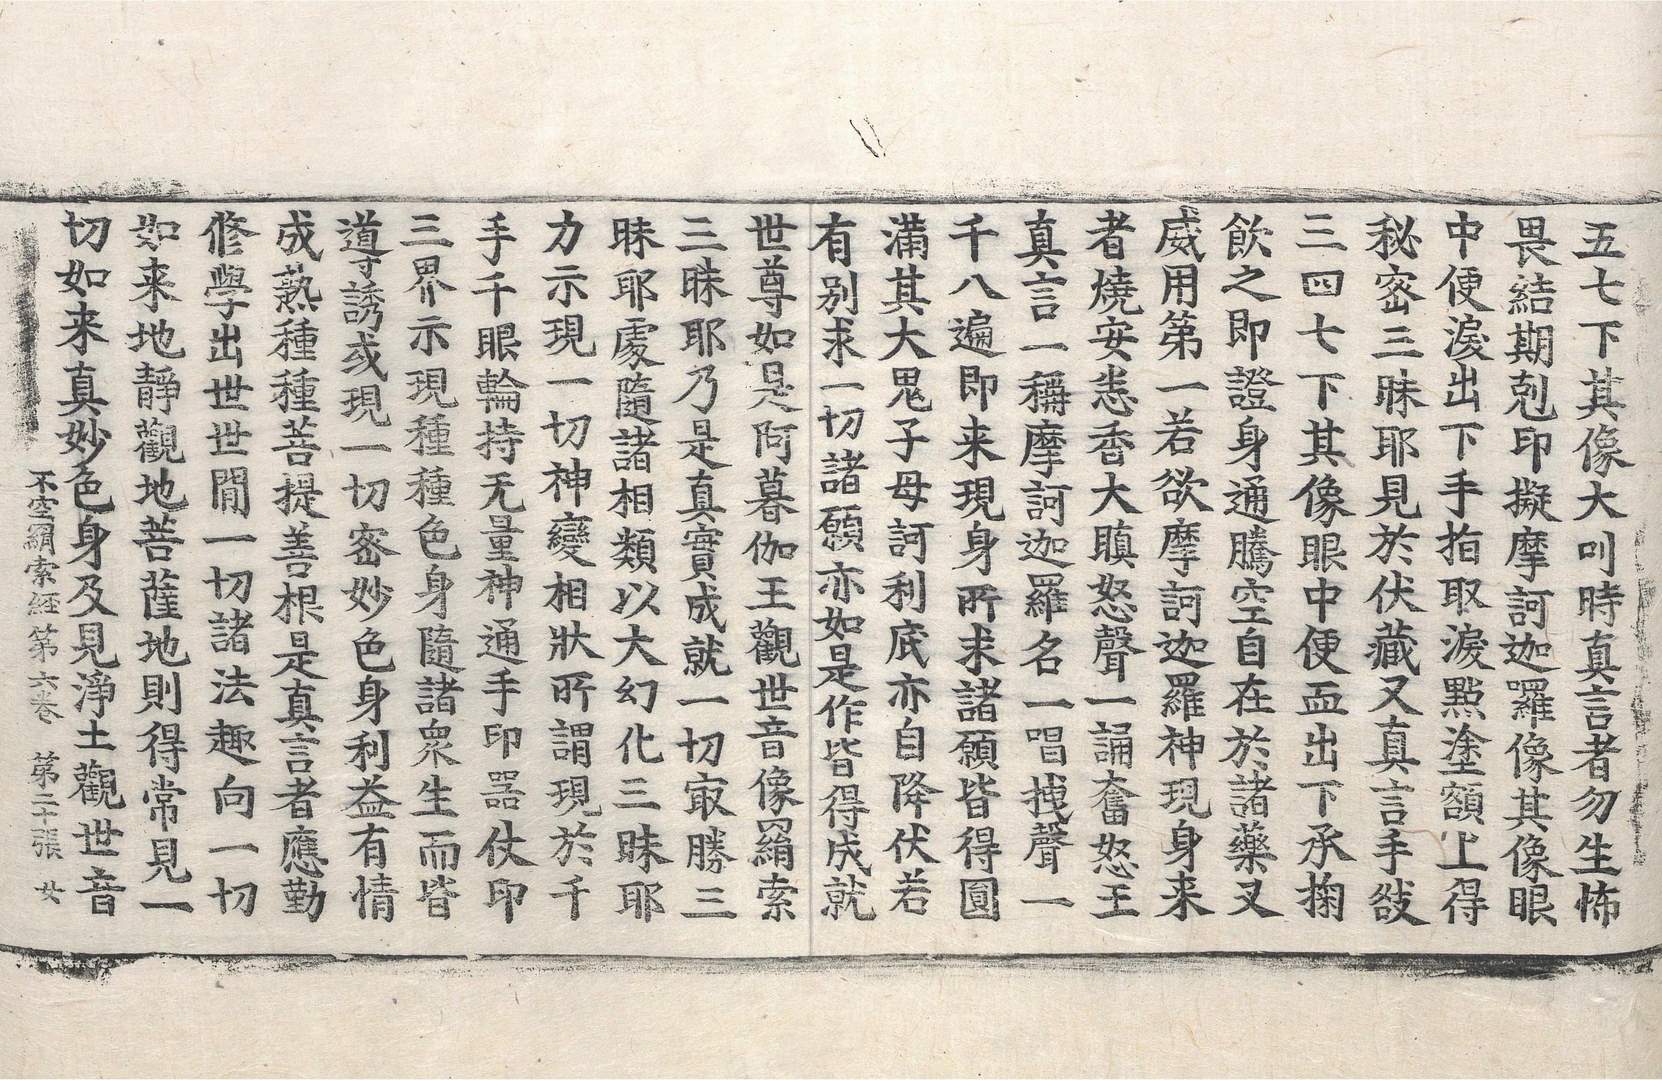 五七下其像大叫時真言者勿生怖
畏結期剋印擬摩訶迦囉像其像眼
中便淚出下手指取淚點塗額上得
秘密三昧耶見於伏藏又真言手敍
三四七下其像眼中便血出下承掬
飲之即證身通騰空自在於諸藥叉
威用第一若欲摩訶迦羅神現身来
者燒安悉香大瞋怒聲一誦奮怒王
真言一稱摩訶迦羅名一唱拽聲一
千八遍即来現身所求諸願皆得圓
滿其大鬼子母訶利底亦自降伏若
有別求一切諸願亦如是作皆得成就
世尊如是阿暮伽王觀世音像羂索
三昧耶乃是真實成就一切㝡勝三
昧耶處隨諸相類以大幻化三昧耶
力示現一切神變相狀所謂現於千
手千眼輪持无量神通手印器仗印
三界示現種種色身隨諸衆生而皆
導誘或現一切密妙色身利益有情
成熟種種菩提善根是真言者應勤
修學出世世間一切諸法趣向一切
如来地靜觀地菩薩地則得常見一
切如来真妙色身及見淨土觀世音
不空羂索経第六卷 第二十張 女